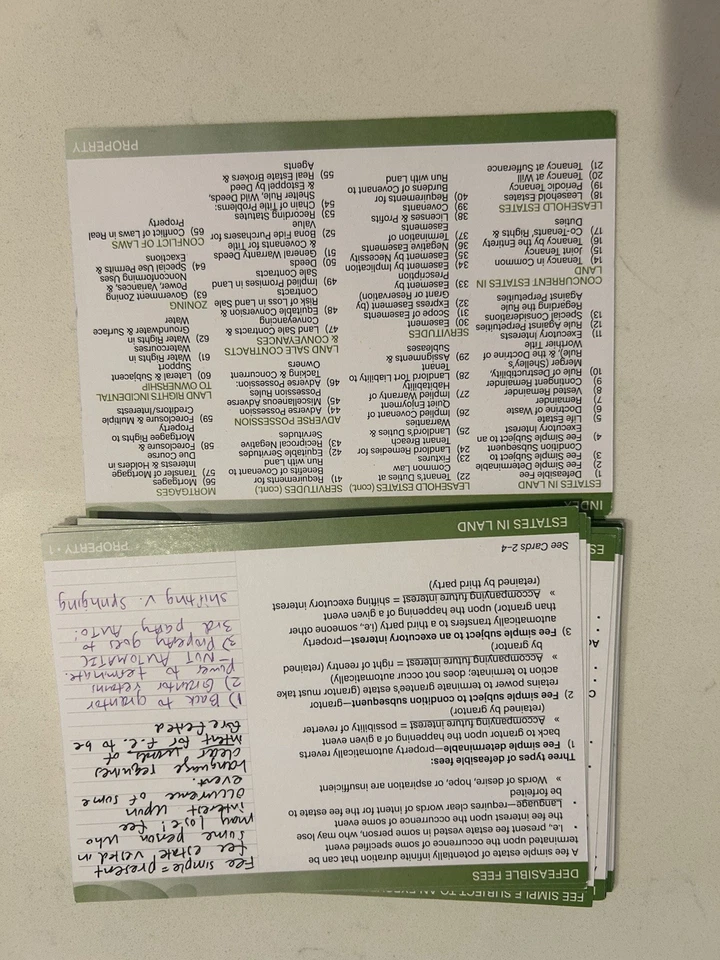 FEE SIMPLE SUBJECT TO AN EXE
DEFEASIBLE FEES
A fee simple estate of potentially infinite duration that can be
terminated upon the occurrence of some specified event
• I.e., present fee estate vested in some person, who may lose
the fee interest upon the occurrence of some event
• Language—requires clear words of intent for the fee estate to
be forfeited
» Words of desire, hope, or aspiration are insufficient
Three types of defeasible fees:
1) Fee simple determinable—property automatically reverts
back to grantor upon the happening of a given event
» Accompanying future interest = possibility of reverter
(retained by grantor)
2) Fee simple subject to condition subsequent—grantor
retains power to terminate grantee's estate (grantor must take
action to terminate; does not occur automatically)
» Accompanying future interest = right of reentry (retained
by grantor)
3) Fee simple subject to an executory interest—property
automatically transfers to a third party (i.e., someone other
than grantor) upon the happening of a given event
» Accompanying future interest = shifting executory interest
(retained by third party)
See Cards 2–4
Fee simple = present
fee estate vested in
some person who
may lose! fee
interest upon
occurrence of some
event.
Language requires
clear words of
intent for f.e. to be
forefeited
1) Back to grantor
2) Grantor retains
power to terminate.
– NOT AUTOMATIC
3) Property goes to
3rd party AUTO!
shifting v. springing
ESTATES IN LAND
PROPERTY • 1
INDEX
ESTATES IN LAND
1) Defeasible Fee
2) Fee Simple Determinable
3) Fee Simple Subject to
Condition Subsequent
4) Fee Simple Subject to an
Executory Interest
5) Life Estate
6) Doctrine of Waste
7) Remainder
8) Vested Remainder
9) Contingent Remainder
10) Rule of Destructibility,
Merger (Shelley's
Rule), & the Doctrine of
Worthier Title
11) Executory Interests
12) Rule Against Perpetuities
13) Special Considerations
Regarding the Rule
Against Perpetuities
CONCURRENT ESTATES IN
LAND
14) Tenancy in Common
15) Joint Tenancy
16) Tenancy by the Entirety
17) Co-Tenants' Rights &
Duties
LEASEHOLD ESTATES
18) Leasehold Estates
19) Periodic Tenancy
20) Tenancy at Will
21) Tenancy at Sufferance
LEASEHOLD ESTATES (cont.)
22) Tenant's Duties at
Common Law
23) Fixtures
24) Landlord Remedies for
Tenant Breach
25) Landlord's Duties &
Warranties
26) Implied Covenant of
Quiet Enjoyment
27) Implied Warranty of
Habitability
28) Landlord Tort Liability to
Tenant
29) Assignments &
Subleases
SERVITUDES
30) Easement
31) Scope of Easements
32) Express Easement (by
Grant or Reservation)
33) Easement by
Prescription
34) Easement by Implication
35) Easement by Necessity
36) Negative Easements
37) Termination of
Easements
38) Licenses & Profits
39) Covenants
40) Requirements for
Burdens of Covenant to
Run with Land
SERVITUDES (cont.)
41) Requirements for
Benefits of Covenant to
Run with Land
42) Equitable Servitudes
43) Reciprocal Negative
Servitudes
ADVERSE POSSESSION
44) Adverse Possession
45) Miscellaneous Adverse
Possession Rules
46) Adverse Possession:
Tacking & Concurrent
Owners
LAND SALE CONTRACTS
& CONVEYANCES
47) Land Sale Contracts &
Conveyancing
48) Equitable Conversion &
Risk of Loss in Land Sale
Contracts
49) Implied Promises in Land
Sale Contracts
50) Deeds
51) General Warranty Deeds
& Covenants for Title
52) Bona Fide Purchasers for
Value
53) Recording Statutes
54) Chain of Title Problems:
Shelter Rule, Wild Deeds,
& Estoppel by Deed
55) Real Estate Brokers &
Agents
MORTGAGES
56) Mortgages
57) Transfer of Mortgage
Interests & Holders in
Due Course
58) Foreclosure &
Mortgagee Rights to
Property
59) Foreclosure & Multiple
Creditors/Interests
LAND RIGHTS INCIDENTAL
TO OWNERSHIP
60) Lateral & Subjacent
Support
61) Water Rights in
Watercourses
62) Water Rights in
Groundwater & Surface
Water
ZONING
63) Government Zoning
Power, Variances, &
Nonconforming Uses
64) Special Use Permits &
Exactions
CONFLICT OF LAWS
65) Conflict of Laws in Real
Property
PROPERTY